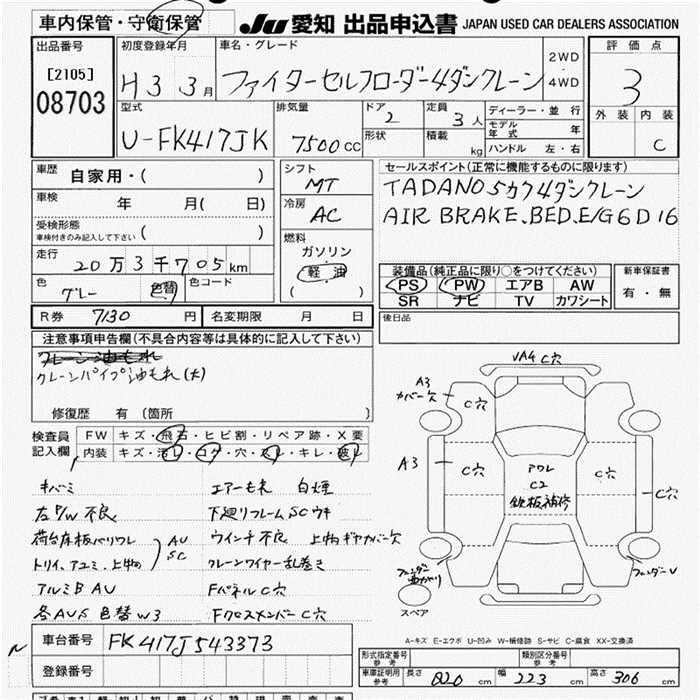 車内保管・守衛保管
JU 愛知 出品申込書 JAPAN USED CAR DEALERS ASSOCIATION
出品番号
[2105]
08703
初度登録年月
H3 3月
車名・グレード
ファイターセルフローダー4ダンクレーン
2WD
・
4WD
評価点
3
外装 内装
C
型式
U-FK417JK
排気量
7500CC
ドア
2
形状
定員
3人
積載
kg
ディーラー・並行
モデル年式 年
ハンドル 左・右
車歴
自家用・( )
車検
年 月( 日)
受検形態
車検付きのみ記入して下さい
( )
走行
20万3千705km
色
グレー
色替
色コード
シフト
MT
冷房
AC
燃料
ガソリン
軽油
( )
セールスポイント(正常に機能するものに限ります)
TADANO5カク4ダンクレーン
AIR BRAKE.BED.E/G6D16
装備品(純正品に限り○をつけてください)
PS PW エアB AW
SR ナビ TV カワシート
新車保証書
有・無
後日品
R券 7130 円
名変期限 月 日
注意事項申告欄(不具合内容等は具体的に記入して下さい)
クレーン油もれ
クレーンパイプ油もれ(大)
修復歴 有 (箇所 )
検査員
記入欄
FW キズ・飛石・ヒビ割・リペア跡・X要
内装 キズ・汚レ・コゲ・穴・スレ・キレ・破レ
キバミ エアーもれ 白煙
左P/W不良 下廻リフレームSCウキ
荷台床板バリワレ ウインチ不良 上物ギヤカバー欠
トリイ、アユミ、上物 AU SC クレーンワイヤー乱巻き
アルミB AU Fパネル C穴
各AU大 色替W3 Fクロスメンバー C穴
車台番号 FK417J543373
登録番号
VA4 C穴
A3
カバー欠
C穴
A3
C穴
アワレ
C2
鉄板補修
C穴
C穴
フェンダー曲がり
フェンダーV
スペア
A-キズ E-エクボ U-凹み W-補修跡 S-サビ C-腐食 XX-交換済
型式指定番号
参考
類別区分番号
参考
車庫証明用
参考
長さ 820 cm
幅 223 cm
高さ 306 cm